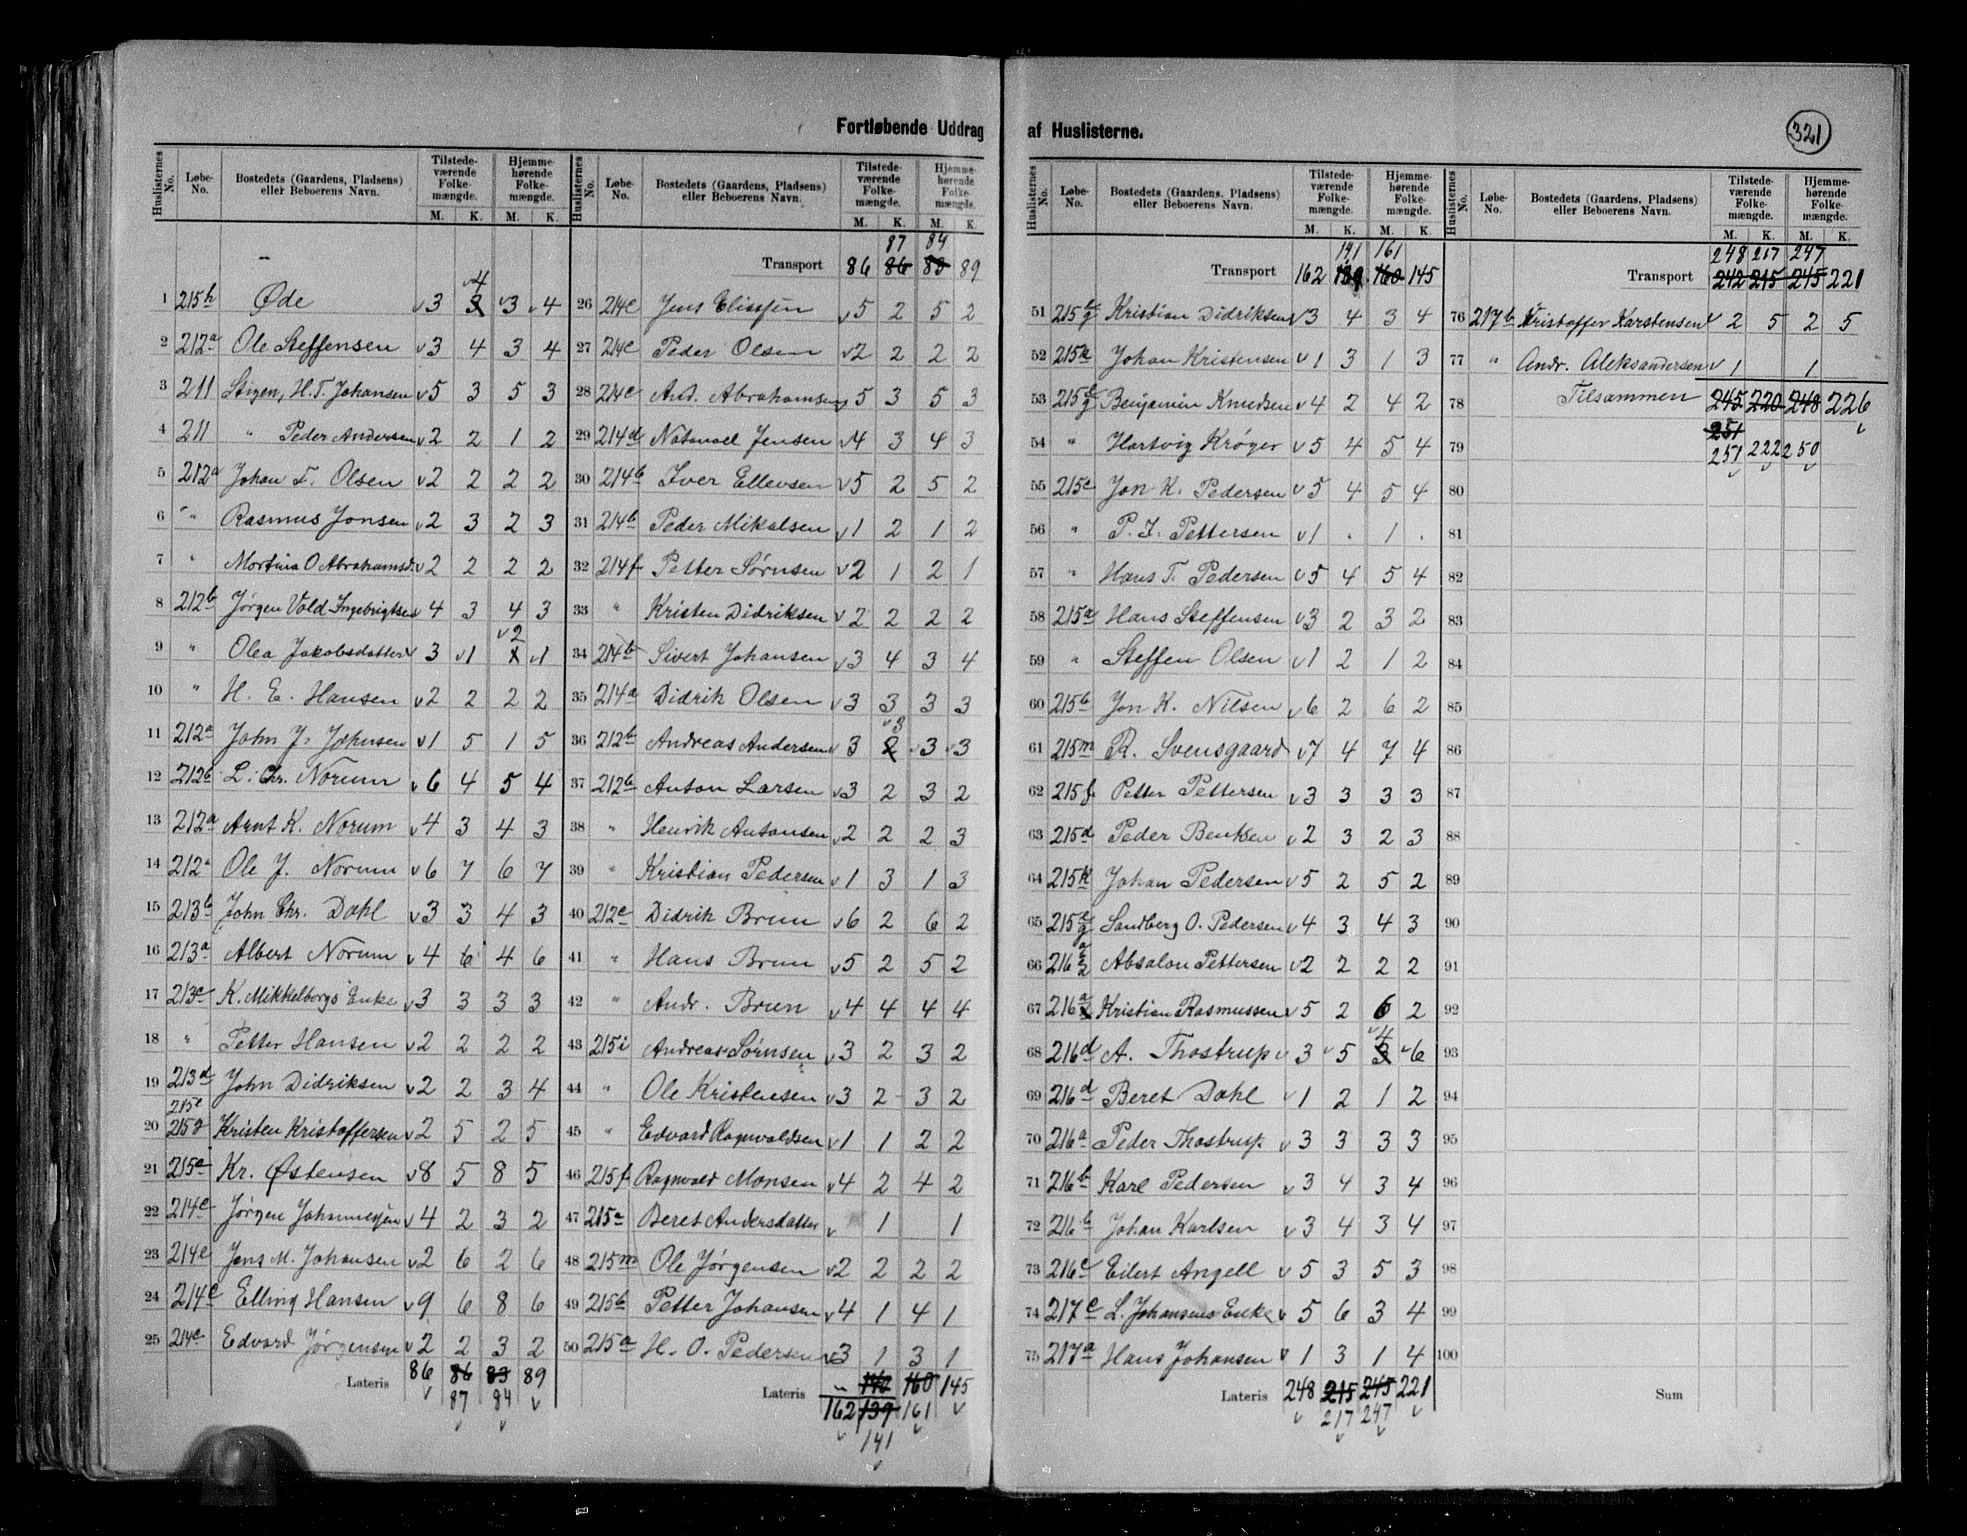 Fortløbende Uddrag af Huslisterne.
321
Huslisternes No. Løbe-No. Bostedets (Gaardens, Pladsens) eller Beboerens Navn. Tilstedeværende Folkemængde. M. K. Hjemmehørende Folkemængde. M. K.
1 215h Øde 3 3 4 3 4
2 212a Ole Steffensen 3 4 3 4
3 211 Stigen, H. T. Johansen 5 3 5 3
4 211 " Peder Andersen 2 2 1 2
5 212a Johan T. Olsen 2 2 2 2
6 " Rasmus Jonsen 2 3 2 3
7 " Martina O Abrahamsd. 2 2 2 2
8 212b Jørgen Vold Ingebrigtsen 4 3 4 3
9 " Olea Jakobsdatter 3 1 2 1
10 " H. E. Hansen 2 2 2 2
11 212a John J. Johnsen 1 5 1 5
12 212b L. Chr. Norum 6 4 5 4
13 212a Arnt K. Norum 4 3 4 3
14 212a Ole J. Norum 6 7 6 7
15 213b John Chr. Dahl 3 3 4 3
16 213a Albert Norum 4 6 4 6
17 213c K. Mikkelborgs Enke 3 3 3 3
18 " Petter Hansen 2 2 2 2
19 213d John Didriksen 2 2 3 4
20 215e 215g Kristen Kristoffersen 2 5 2 5
21 215a Kr. Østensen 8 5 8 5
22 214c Jørgen Johannesen 4 2 3 2
23 214e Jens M. Johansen 2 6 2 6
24 214c Elling Hansen 9 6 8 6
25 214c Edvard Jørgensen 2 2 3 2
Lateris 86 86 83 89
87 84
Huslisternes No. Løbe-No. Bostedets (Gaardens, Pladsens) eller Beboerens Navn. Tilstedeværende Folkemængde. M. K. Hjemmehørende Folkemængde. M. K.
87 84
Transport 86 86 83 89
26 214c Jens Elissen 5 2 5 2
27 214c Peder Olsen 2 2 2 2
28 214c And. Abrahamsen 5 3 5 3
29 214d Natanael Jensen 4 3 4 3
30 214b Iver Ellevsen 5 2 5 2
31 214b Peder Mikalsen 1 2 1 2
32 214f Petter Sørnsen 2 1 2 1
33 " Kristen Didriksen 2 2 2 2
34 214b Sivert Johansen 3 4 3 4
35 214a Didrik Olsen 3 3 3 3
36 212b Andreas Andersen 3 2 3 3 3
37 212b Anton Larsen 3 2 3 2
38 " Henrik Antonsen 2 2 2 3
39 " Kristian Pedersen 1 3 1 3
40 212c Didrik Brun 6 2 6 2
41 " Hans Brun 5 2 5 2
42 " Andr. Brun 4 4 4 4
43 215i Andreas Sørnsen 3 2 3 2
44 " Ole Kristensen 3 2 3 2
45 " Edvard Ragnvaldsen 1 1 2 2
46 215f Ragnvald Monsen 4 2 4 2
47 215a Beret Andersdatter 1 1
48 215m Ole Jørgensen 2 2 2 2
49 215b Petter Johansen 4 1 4 1
50 215a H. O. Pedersen 3 1 3 1
Lateris 140 160 145
162 139 161
141
Huslisternes No. Løbe-No. Bostedets (Gaardens, Pladsens) eller Beboerens Navn. Tilstedeværende Folkemængde. M. K. Hjemmehørende Folkemængde. M. K.
141 161
Transport 162 139 160 145
51 215 g Kristian Didriksen 3 4 3 4
52 215k Johan Kristensen 1 3 1 3
53 215 g Benjamin Knudsen 4 2 4 2
54 " Hartvig Krøger 5 4 5 4
55 215c Jon K. Pedersen 5 4 5 4
56 " P. J. Pettersen 1 . 1 .
57 " Hans T. Pedersen 5 4 5 4
58 215a Hans Steffensen 3 2 3 2
59 " Steffen Olsen 1 2 1 2
60 215b Jon K. Nilsen 6 2 6 2
61 215m R. Svensgaard 7 4 7 4
62 215f Petter Pettersen 3 3 3 3
63 215d Peder Benksen 2 3 2 3
64 215k Johan Pedersen 5 2 5 2
65 215 g Sandberg O. Pedersen 4 3 4 3
66 216 a Absalon Pettersen 2 2 2 2
67 216a Kristian Rasmussen 5 2 6 2
68 216d A. Thostrup 3 5 3 4 6
69 216d Beret Dahl 1 2 1 2
70 216a Peder Thostrup 3 3 3 3
71 216b Karl Pedersen 3 4 3 4
72 216b Johan Karlsen 3 4 3 4
73 216c Eilert Angell 5 3 5 3
74 217c L. Johansens Enke 5 6 3 4
75 217a Hans Johansen 1 3 1 4
Lateris 248 215 245 221
217 247
Huslisternes No. Løbe-No. Bostedets (Gaardens, Pladsens) eller Beboerens Navn. Tilstedeværende Folkemængde. M. K. Hjemmehørende Folkemængde. M. K.
248 217 247
Transport 242 215 245 221
76 217b Kristoffer Karstensen 2 5 2 5
77 " Andr. Aleksandersen 1 1
78 Tilsammen 245 220 248 226
251
79 251 222 250
80
81
82
83
84
85
86
87
88
89
90
91
92
93
94
95
96
97
98
99
100
Sum